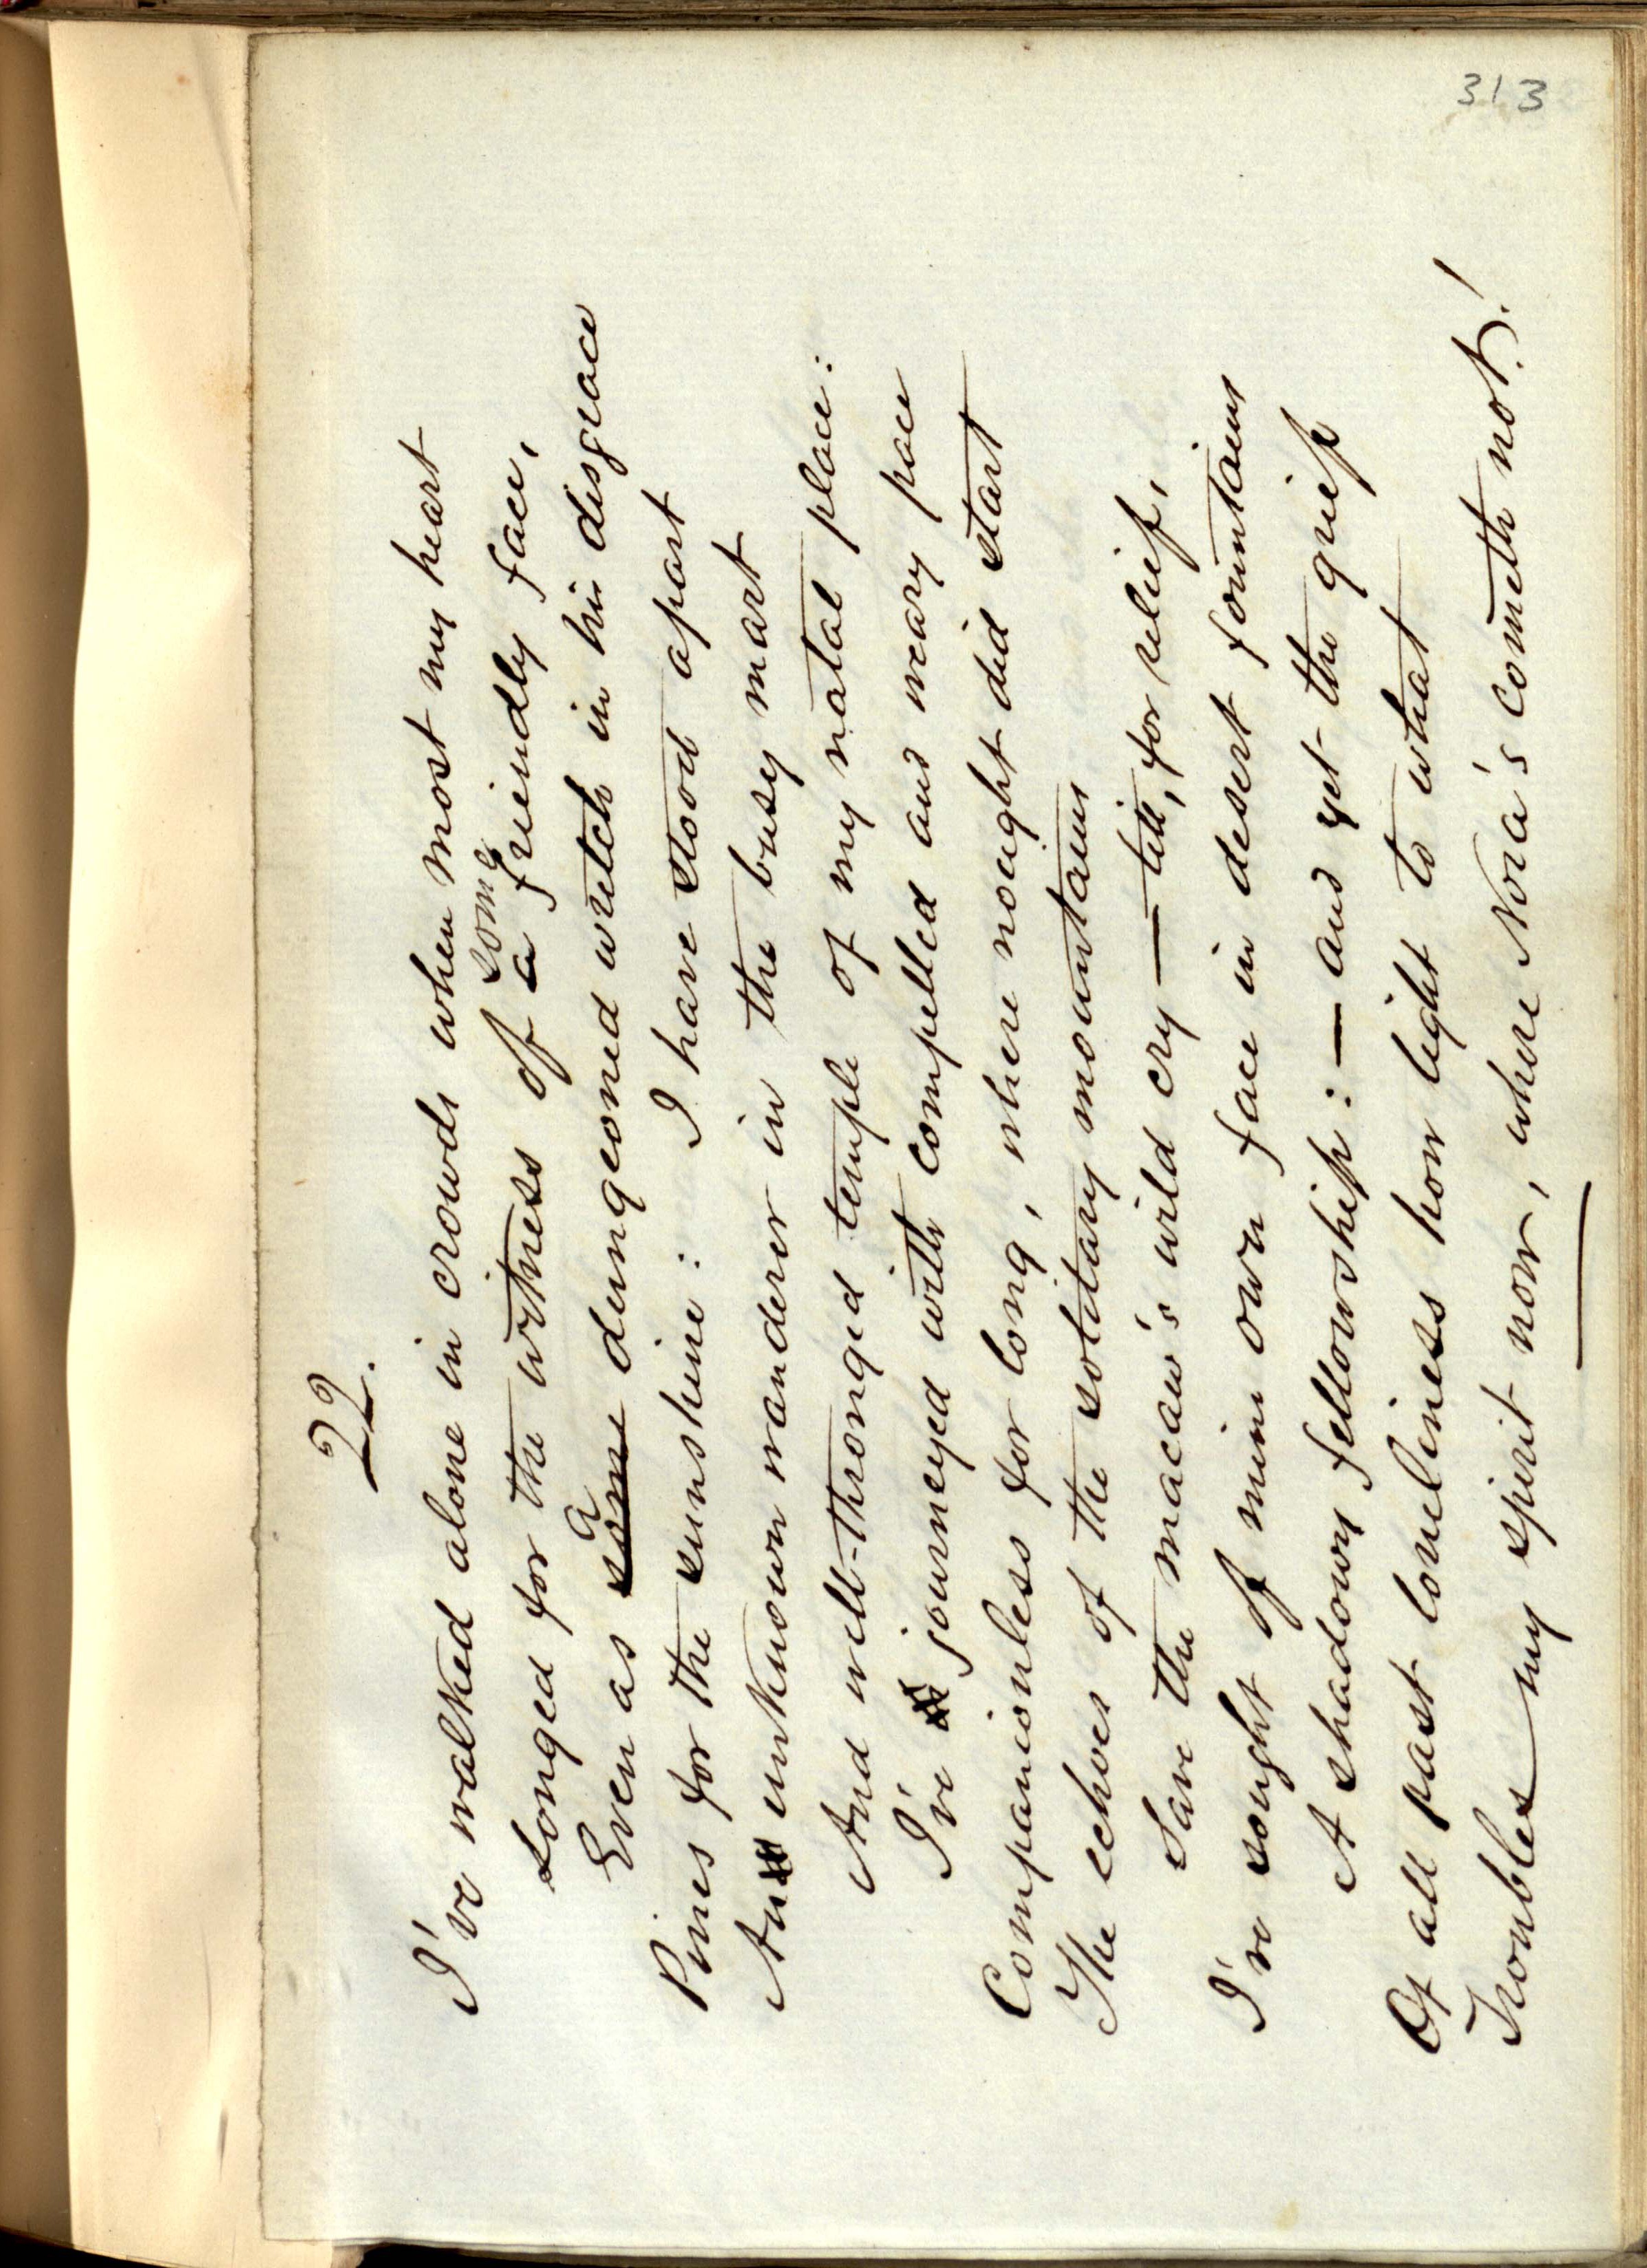 313
22.
I've walked alone in crowds when most my heart
Longed for the witness of a some friendly face,
Even as some a dungeoned wretch in his disgrace
Pines for the sunshine: I have stood apart
An unknown wanderer in the busy mart
And well-thronged temple of my natal place:
I've journeyed with compelled and weary pace
Companionless for long, where nought did start
The echoes of the solitary mountains
Save the macaw's wild cry — till, for relief,
I've sought of mine own face in desert fountains
A shadowy fellowship: — and yet the grief
Of all past loneliness how light to what
Troubles my spirit now, where Nora's cometh not!